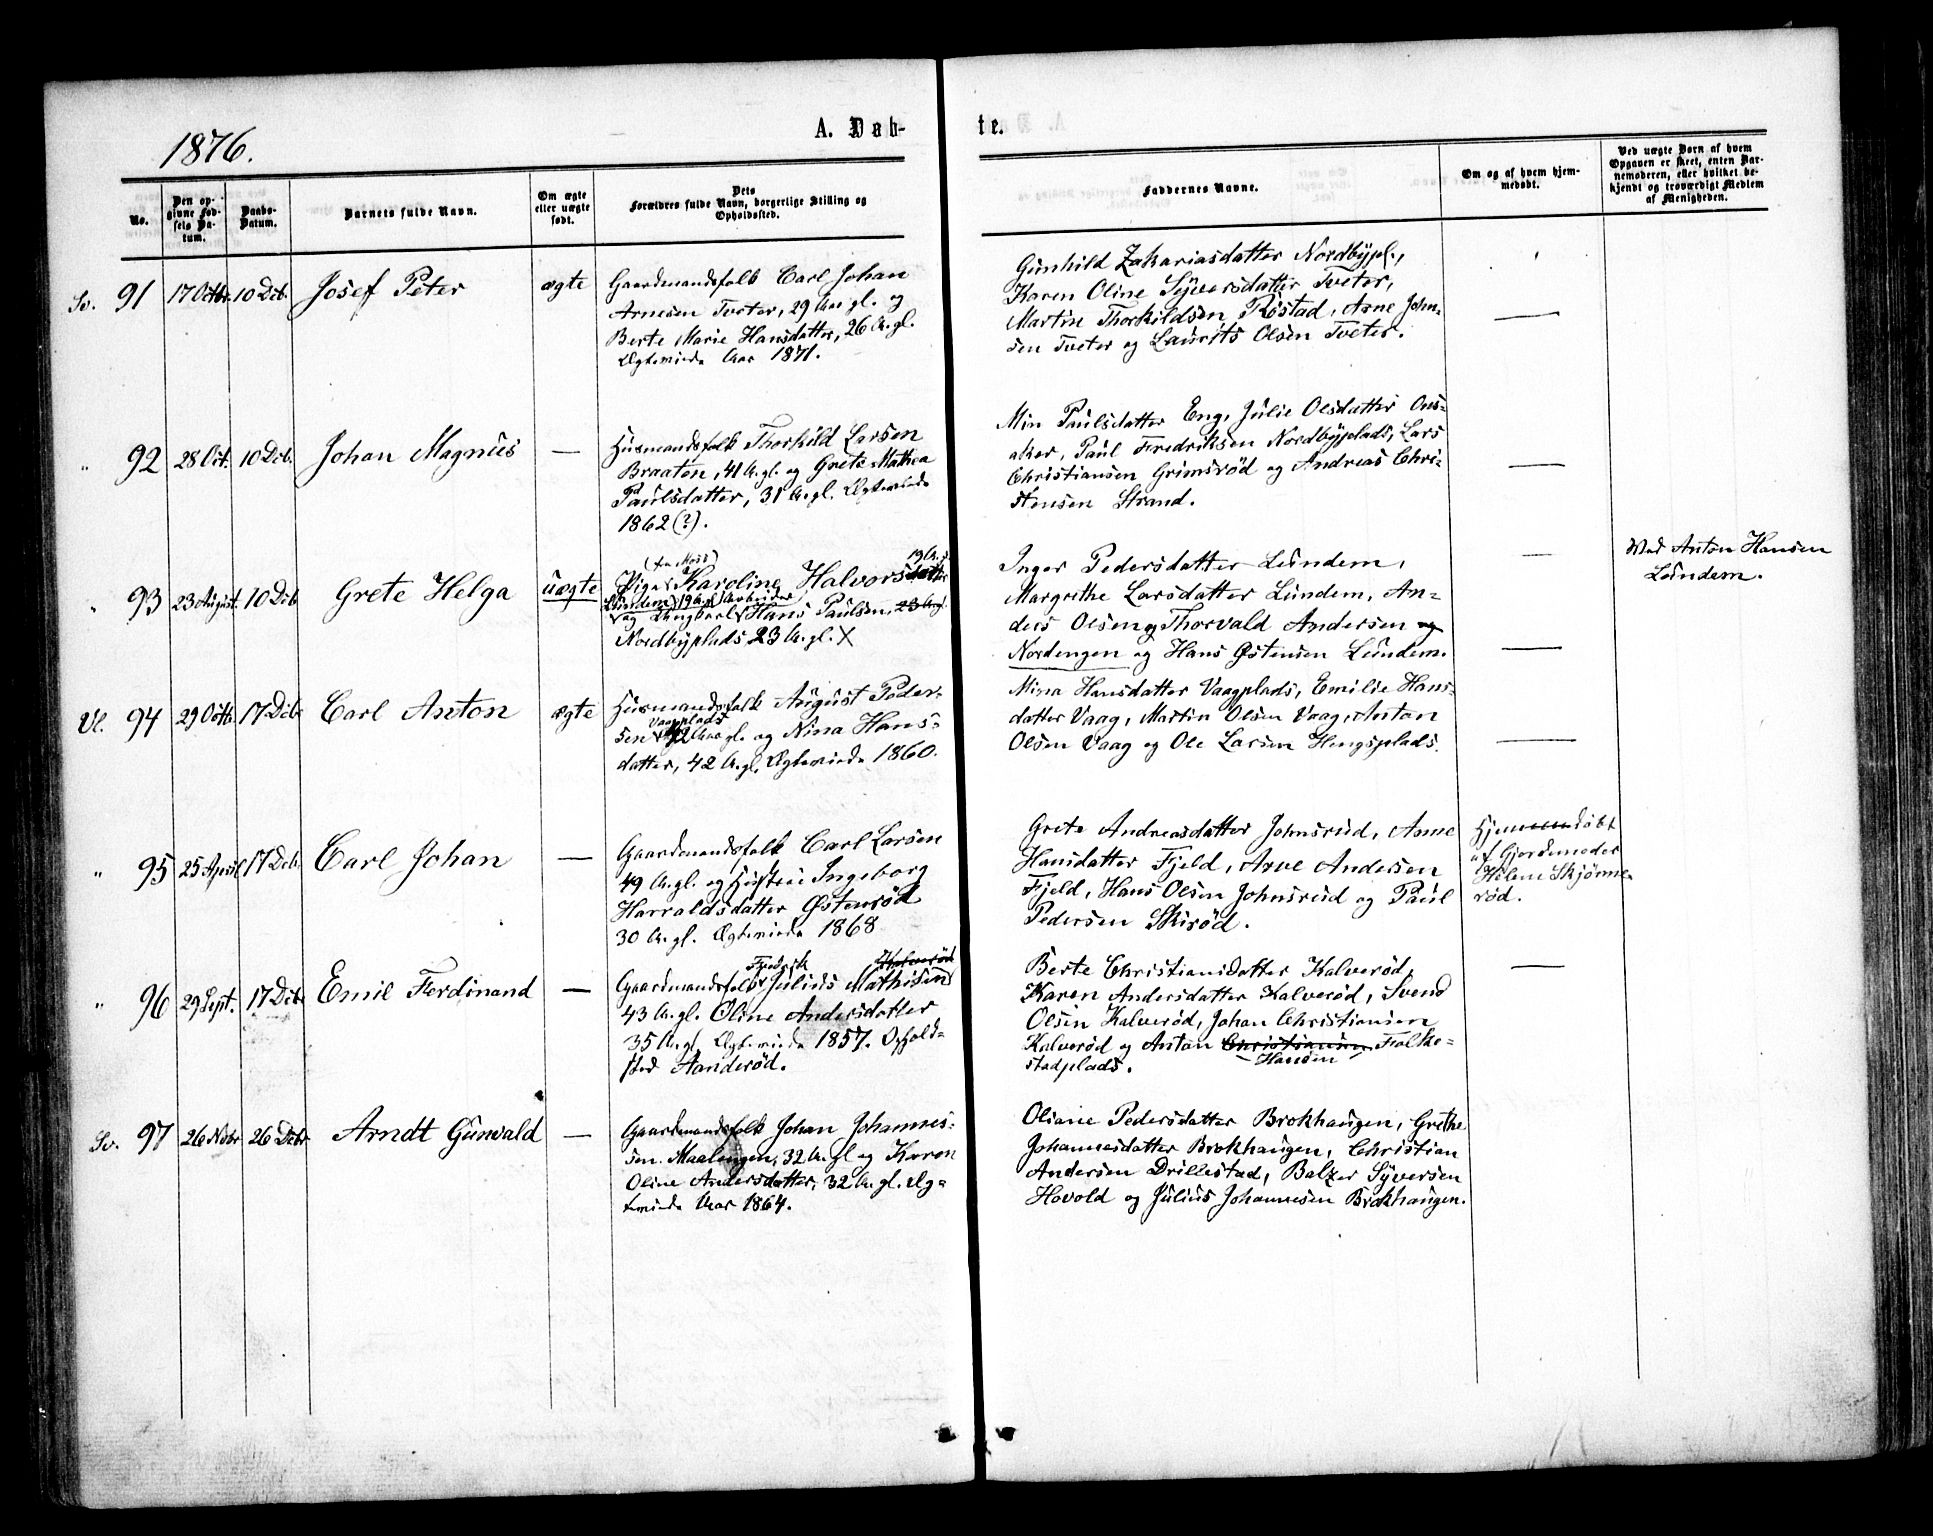 1876.
A. Døb-
te.
No.
Den op-
givne Fød-
sels Da-
tum.
Daabs-
Datum.
Barnets fulde Navn.
Om ægte
eller uægte
født.
Dets
Forældres fulde Navn, borgerlige Stilling og
Opholdssted.
Faddernes Navne.
Om og af hvem hjem-
medøbt.
Ved uægte Børn af hvem
Opgaven er skeet, enten Bar-
nemoderen, eller hvilket be-
kjendt og troværdigt Medlem
af Menigheden.
Sv. 91 17 Octbr. 10 Deb. Josef Peter ægte
Gaardmandsfolk Carl Johan
Arnesen Tveter, 29 Aar gl. og
Berte Marie Hansdatter, 26 A. gl.
Ægteviede Aar 1871.
Gunhild Zakariasdatter Nordbypl.,
Karen Oline Syversdatter Tveter,
Martin Thorkildsen Röstad, Arne John-
sen Tveter og Laurits Olsen Tveter.
—
" 92 28 Oct. 10 Deb. Johan Magnus —
Husmandsfolk Thorkild Larsen
Braaten, 41 A. gl. og Grete Mathea
Paulsdatter, 31 A. gl. Ægteviede
1862 (?).
Min Paulsdatter Eng, Julie Olsdatter Ons-
aker, Paul Fredriksen Nordbyplads, Lars
Christiansen Grimsrød og Andreas Chri-
stensen Strand.
—
" 93 23 August. 10 Deb Grete Helga uægte
(fra Moss) 19 A. gl.
Pige Karoline Halvorsdatter
Lundem, 19 A. gl. Arbeider
og Ungkarl Hans Paulsen, 23 A. gl.
Nordbyplads, 23 A. gl. X
Inger Pedersdatter Lundem,
Margrethe Larsdatter Lundem, An-
ders Olsen og Thorvald Andersen og
Nordengen og Hans Østensen Lundem.
—
—
Ved Anton Hansen
Lundem.
Vl. 94 29 Octb. 17 Deb. Carl Anton ægte
Husmandsfolk August Peder-
Vaagplads
sen 42 Aar gl. og Nina Hans-
datter, 42 A. gl. Ægteviede 1860.
Mina Hansdatter Vaagplads, Emilie Hans-
datter Vaag, Martin Olsen Vaag, Anton
Olsen Vaag og Ole Larsen Hengsplads.
—
" 95 25 April 17 Deb. Carl Johan —
Gaardmandsfolk Carl Larsen
49 A. gl. og Hustrue Ingeborg
Harraldsdatter Østenrød
30 A. gl. Ægteviede 1868
Grete Andreasdatter Johnsrud, Anne
Hansdatter Fjeld, Arve Andersen
Fjeld, Hans Olsen Johnsrud og Paul
Pedersen Skirød.
Hjemmedøbt
af Gjordemoder
Helene Skjønne-
rød.
" 96 29 Sept. 17 Deb. Emil Ferdinand —
Fredrik Kalverød
Gaardmandsfolk Julius Mathisen
43 A. gl. Oline Andersdatter
35 A. gl. Ægteviede 1857. Ophold-
sted Aanderød.
Berte Christiansdatter Kalverød,
Karen Andersdatter Kalverød, Svend
Olsen Kalverød, Johan Christiansen
Kalverød og Anton Christiansen Falke-
— Hansen —
stadplads.
—
Sv. 97 26 Nobr 26 Debr Arndt Gunvald —
Gaardmandsfolk Johan Johannes-
sen Maalengen, 32 A. gl og Karen
Oline Andersdatter, 32 A. gl. Æg-
teviede Aar 1864.
Oliane Pedersdatter Brokhaugen, Grethe
Johannesdatter Brokhaugen, Christian
Andersen Drillestad, Balzer Syversen
Hovold og Julius Johannesen Brokhaugen.